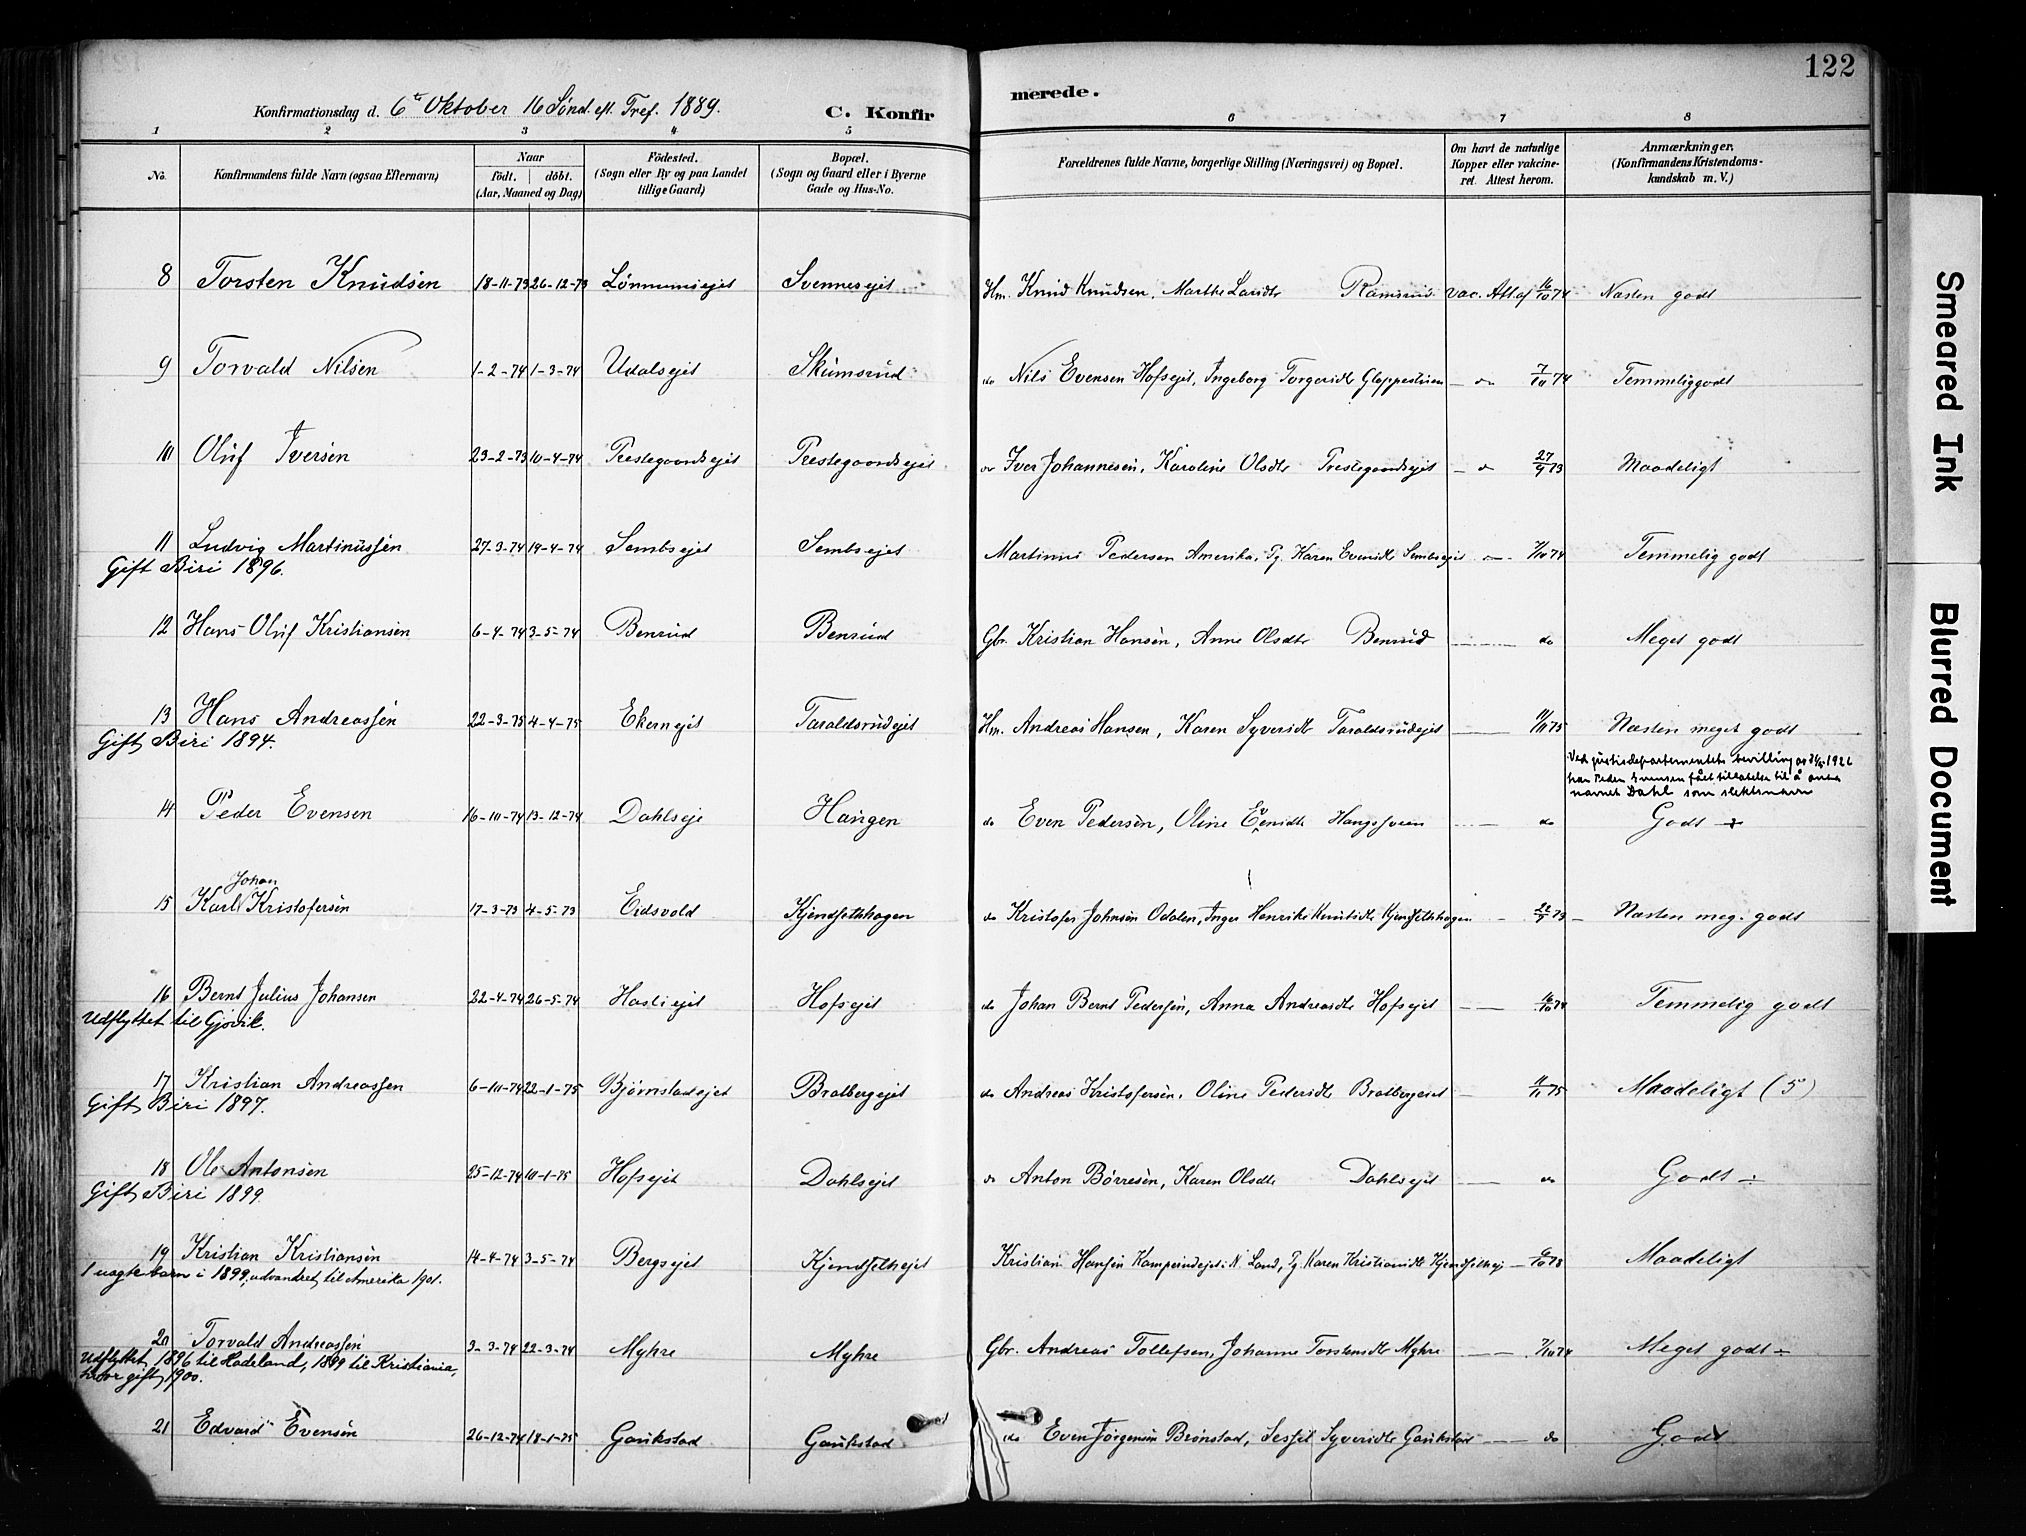 122
Konfirmationsdag d. 6te Oktober 16 Sønd. eft. Tref. 1889. C. Konfir
merede.
1 2 3 4 5 6 7 8
No. Konfirmandens fulde Navn (ogsaa Efternavn) Naar født. døbt. (Aar, Maaned og Dag) Fødested. (Sogn eller By og paa Landet tillige Gaard) Bopæl. (Sogn og Gaard eller i Byerne Gade og Hus-No. Forældrenes fulde Navne, borgerlige Stilling (Næringsvei) og Bopæl. Om havt de naturlige Kopper eller vakcineret. Attest herom. Anmærkninger. (Konfirmandens Kristendomskundskab m. V.)
8 Torsten Knudsen 18-11-73 26-12-73 Lønnumsejet Svennesejet Hm. Knud Knudsen, Marthe Larsdtr Ramsrud vac. Att. af 16/10 74 Næsten godt
9 Torvald Nilsen 1-2-74 1-3-74 Udalsejet Skumsrud do Nils Evensen Hofsejet, Ingeborg Torgersdtr Gloppestuen — do 7/10 74 Temmelig godt
10 Oluf Iversen 23-2-73 10-4-74 Prestegaardsejet Prestegaardsejet do Iver Johannesen, Karoline Olsdtr Prestegaardsejet — do 27/9 73 Maadeligt
11 Ludvig Martinussen 27-3-74 19-4-74 Sembsejet Sembsejet Martinus Pedersen Amerika, Pg. Karen Evensdtr Sembsejet — 7/10 74 Temmelig godt
Gift Biri 1896.
12 Hans Oluf Kristiansen 6-4-74 3-5-74 Benrud Benrud Gbr. Kristian Hansen, Anne Olsdtr Benrud — do Meget godt
13 Hans Andreassen 22-3-75 4-4-75 Ekernejet Taraldsrudejet Hm. Andreas Hansen, Karen Syversdtr Taraldsrudejet — 11/11 75 Næsten meget godt
Gift Biri 1894.
Ved justisdepartementets bevilling av 1926
har Peder Evensen fått tillatelse til å anta
navnet Dahl som slektsnavn
14 Peder Evensen 16-10-74 13-12-74 Dahlseje Haugen do Even Pedersen, Oline Evensdtr Haugssveen — do Godt ÷
Johan
15 Karl Kristofersen 17-3-73 4-5-73 Eidsvold Kjendsethhagen do Kristofer Johnsen Odalen, Inger Henrikke Knutsdtr Kjendsethhagen — 22/9 73 — Næsten meg. godt
16 Bernt Julius Johansen 22-4-74 26-5-74 Hasliejet Hofsejet do Johan Bernt Pedersen, Anna Andreasdtr Hofsejet — 16/10 74 Temmelig godt
Udflyttet til Gjøvik.
17 Kristian Andreassen 6-10-74 22-1-75 Bjørnstadejet Bratbergejet do Andreas Kristofersen, Oline Pedersdtr Bratbergeiet — 11/11 75 Maadeligt (5)
Gift Biri 1897.
18 Ole Antonsen 25-12-74 10-1-75 Hofsejet Dahlsejet do Anton Børresen, Karen Olsdtr Dahlsejet — do Godt ÷
Gift Biri 1899.
19 Kristian Kristiansen 14-4-74 3-5-74 Bergsejet Kjendsethejet Kristian Hansen Kamperudejet i N. Land, Pg. Karen Kristiansdtr Kjendsethej — 6/10 78 Maadeligt
1 uægte barn i 1899, udvandret til Amerika 1901.
20 Torvald Andreassen 3-3-74 22-3-74 Myhre Myhre Gbr. Andreas Tollefsen, Johanne Torstensdtr Myhre — 7/10 74 Meget godt ÷
Udflyttet 1896 til Hadeland, 1899 til Kristiania,
hvor gift 1900.
21 Edvard Evensen 26-12-74 18-1-75 Gaukstad Gaukstad do Even Jørgensen Brønstad, Sessel Syversdtr Gaukstad — do Godt
Smeared Ink
Blurred Document